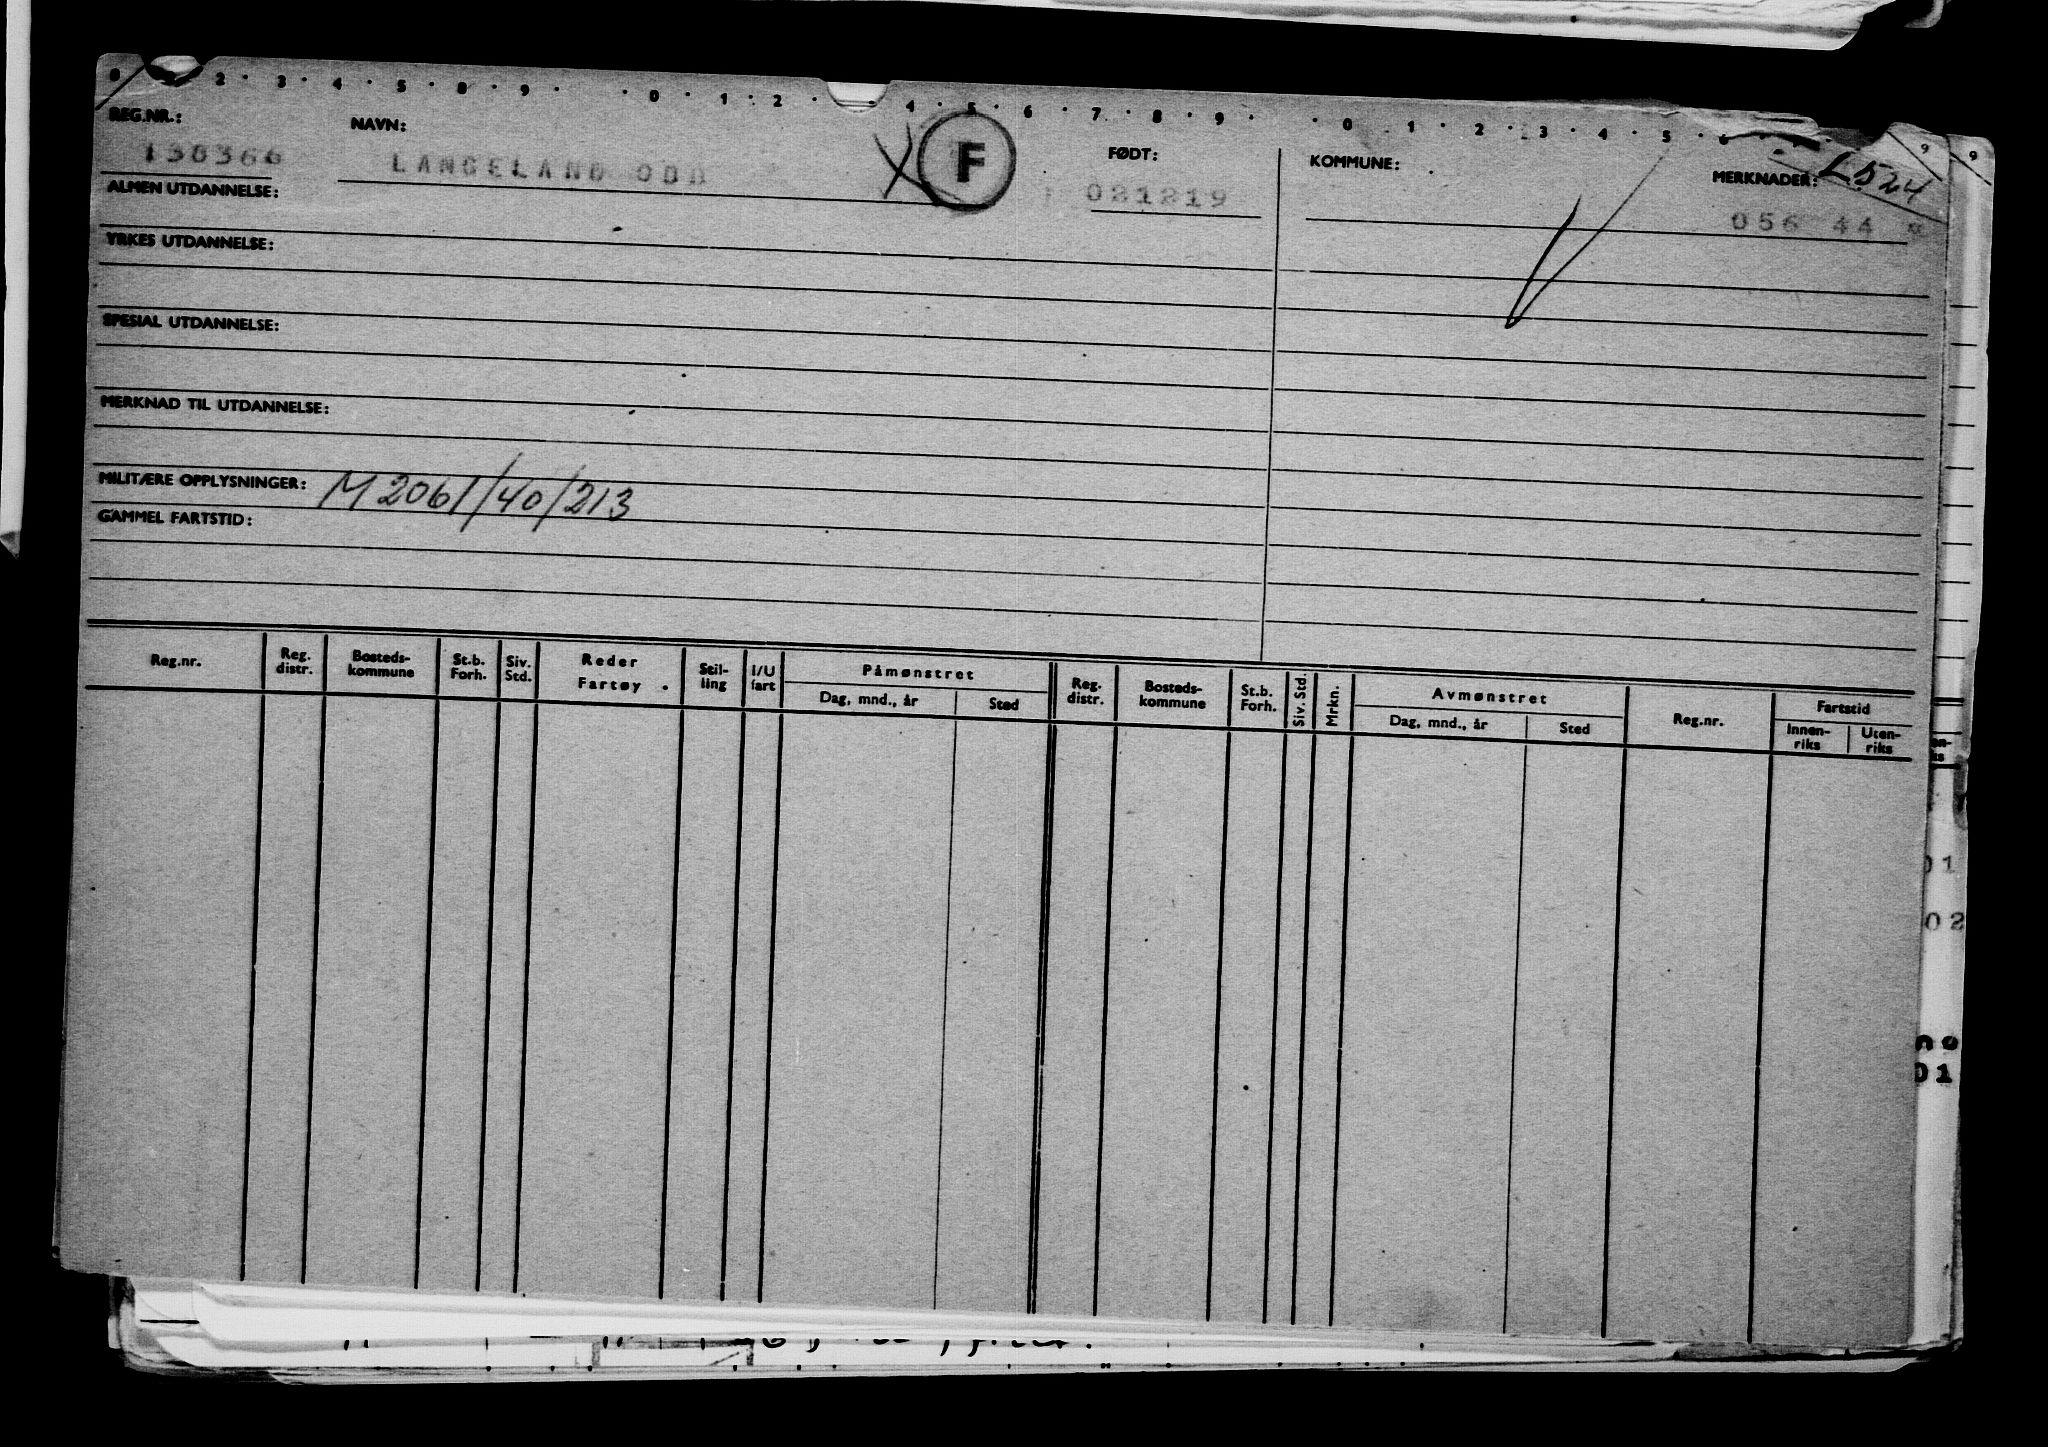 0 2 · 3 · 4 · 5 · 8 · 9 · · 0 · 1 · 2 · · 4 · 5 · 6 · 7 · 8 · 9 · · 0 · 1 · 2 · 3 · 4 · 5 · 6 9 9
REG.NR.: NAVN: F FØDT: KOMMUNE: MERKNADER: L524
130366 LANGELAND ODD 021219 056 44
ALMEN UTDANNELSE:
YRKES UTDANNELSE:
SPESIAL UTDANNELSE:
MERKNAD TIL UTDANNELSE:
MILITÆRE OPPLYSNINGER: M2061/40/213
GAMMEL FARTSTID:
Reg.nr. Reg. distr. Bosteds-kommune St.b. Forh. Siv. Std. Reder Fartøy. Stil-ling I/U fart Påmønstret Reg. distr. Bosteds-kommune St.b. Forh. Siv. Std. Mrkn. Avmønstret Reg.nr. Fartstid
Dag, mnd., år Sted Dag, mnd., år Sted Innen-riks Uten-riks
01
02
no
01